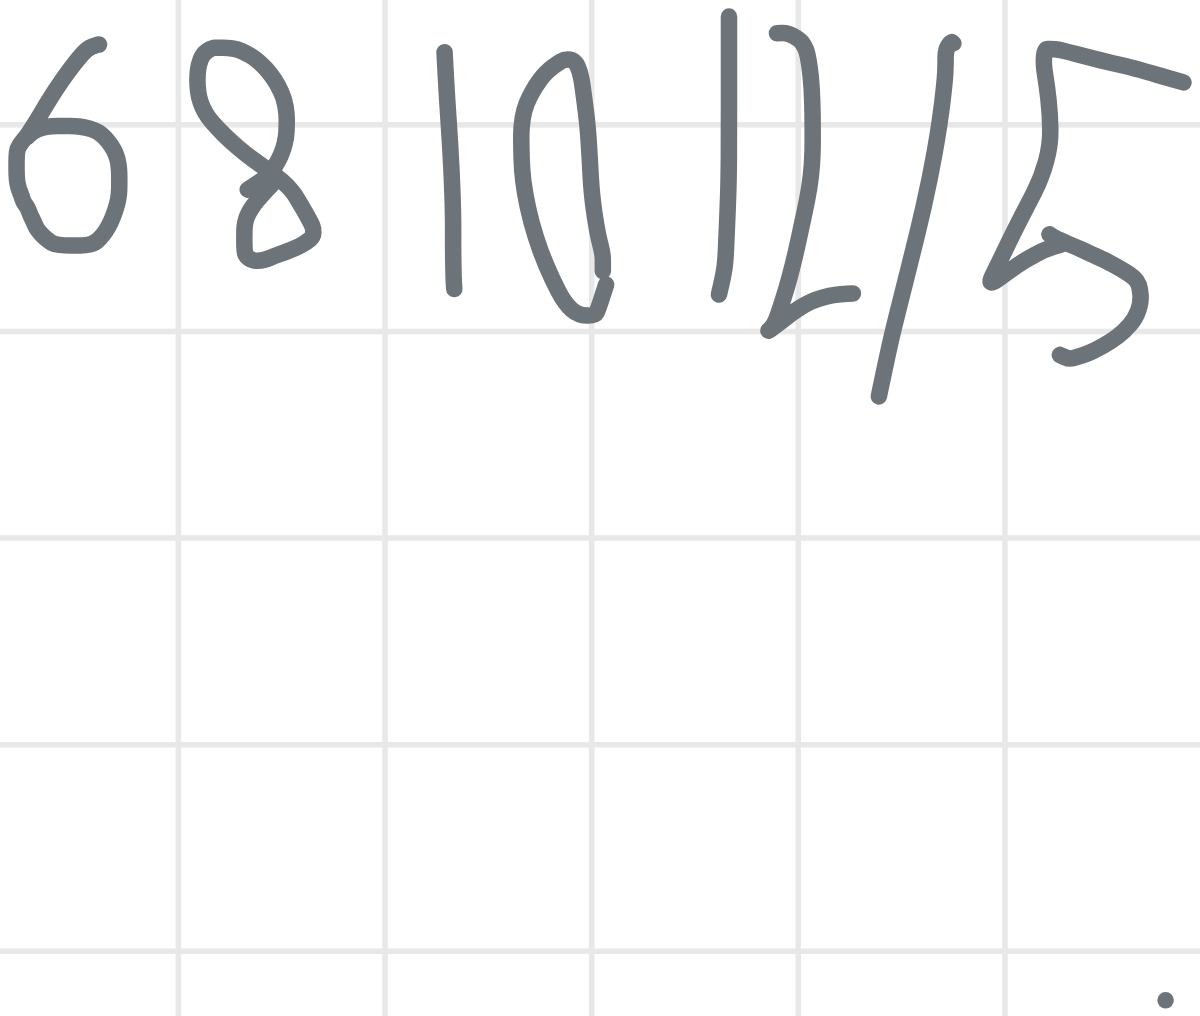 6 8 10 12/5